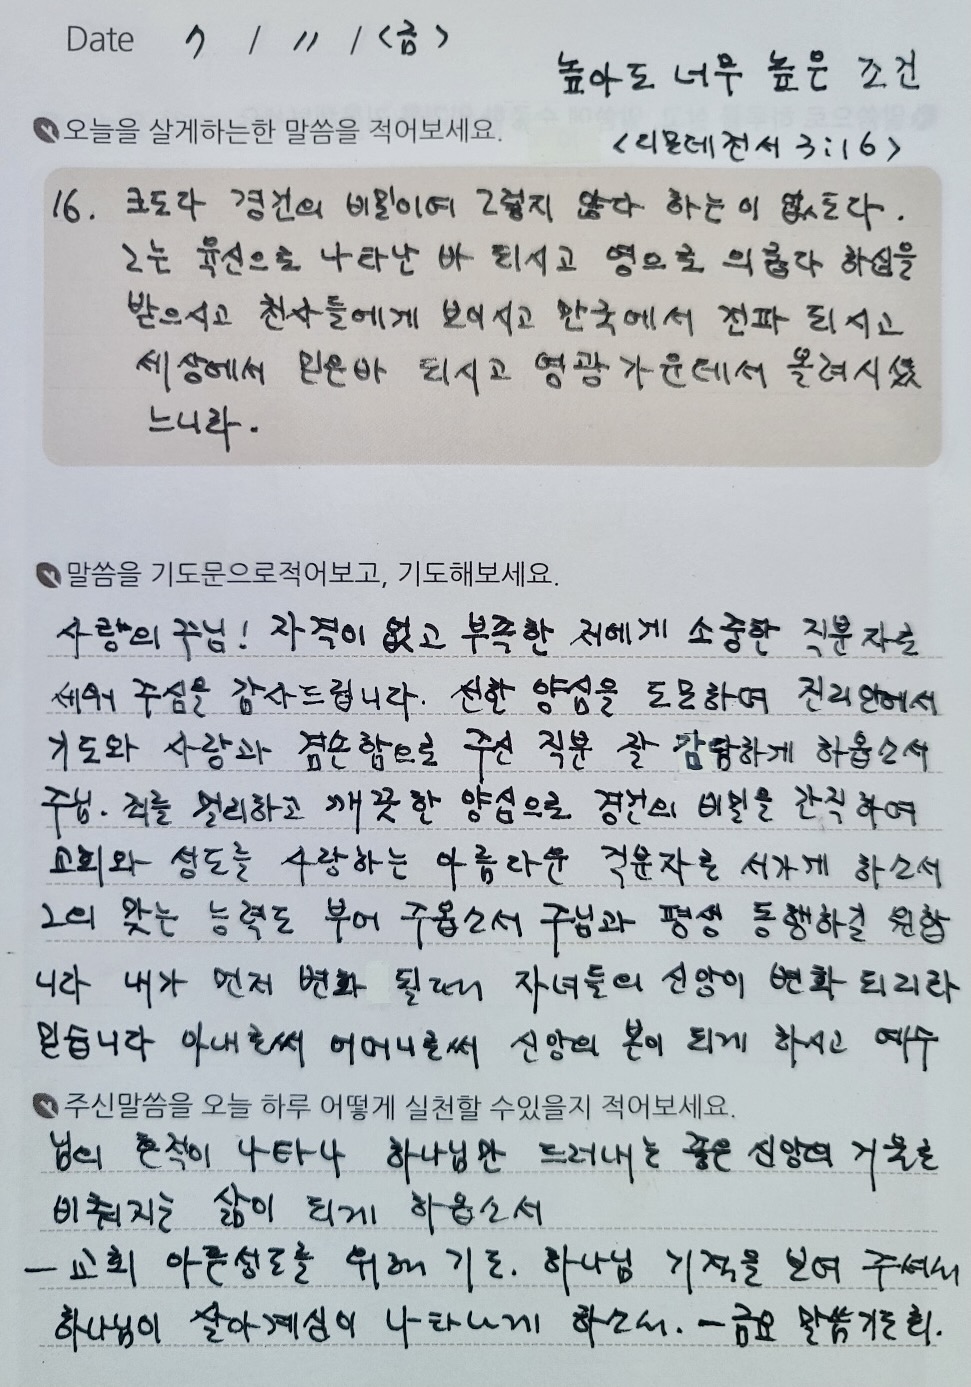 Date 7 / 11 / <금>
높아도 너무 높은 조건
오늘을 살게하는한 말씀을 적어보세요.
<디모데전서 3:16>
16. 크도다 경건의 비밀이여 그렇지 않다 하는이 없도다.
그는 육신으로 나타난 바 되시고 영으로 의롭다 하심을
받으시고 천사들에게 보이시고 만국에서 전파 되시고
세상에서 믿은바 되시고 영광 가운데서 올려지셨
느니라.
말씀을 기도문으로적어보고, 기도해보세요.
사랑의 주님! 자격이 없고 부족한 저에게 소중한 직분자로
세워 주심을 감사드립니다. 선한 양심을 도모하며 진리안에서
기도와 사랑과 겸손함으로 주신 직분 잘 감당하게 하옵소서
주님. 죄를 멀리하고 깨끗한 양심으로 경건의 비밀을 간직하여
교회와 성도를 사랑하는 아름다운 직분자로 서가게 하소서
그의 맞는 능력도 부어 주옵소서 주님과 평생 동행하길 원합
니다 내가 먼저 변화 될때에 자녀들의 신앙이 변화 되리라
믿습니다 아내로써 어머니로써 신앙의 본이 되게 하시고 예수
주신말씀을 오늘 하루 어떻게 실천할 수있을지 적어보세요.
님의 흔적이 나타나 하나님만 드러내는 좋은 신앙의 거울로
비춰지는 삶이 되게 하옵소서
– 교회 아픈성도를 위해 기도. 하나님 기적을 보여 주셔서
하나님이 살아계심이 나타나게 하소서. – 금요 말씀기도회.